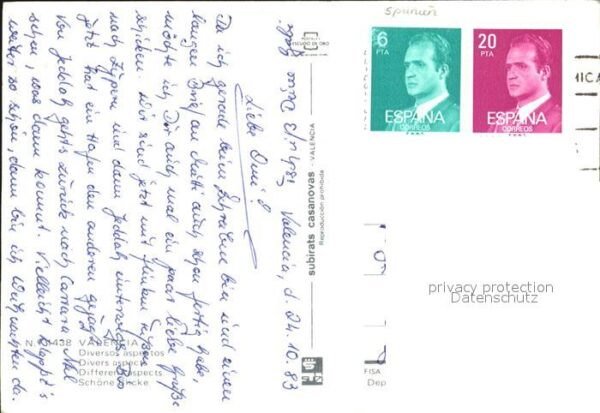 Spanien
6
PTA
ESPAÑA
CORREOS
20
PTA
ESPAÑA
CORREOS
MICA
POSTALES
ESCUDO DE ORO
subirats casanovas - VALENCIA
Reproducción prohibida
privacy protection
Datenschutz
FISA
Dep
N.º 1438 VALENCIA
Diversos aspectos
Divers aspects
Different aspects
Schöne Blicke
z.Zt. Valencia, d. 24.10.83
Liebe Omi!
Da ich gerade beim Schreiben bin und einen
langen Brief an Mutti auch schon fertig habe,
möchte ich Dir auch mal ein paar liebe Grüße
schicken. Wir sind jetzt mit
nach Zypern und dann Jeddah unterwegs. Bis
jetzt hat ein Hafen den anderen gejagt.
Von Jeddah geht's zurück nach Carrara. Mal
sehen, was dann kommt. Vielleicht klappt's
weiter so schön, dann bin ich Weihnachten da.